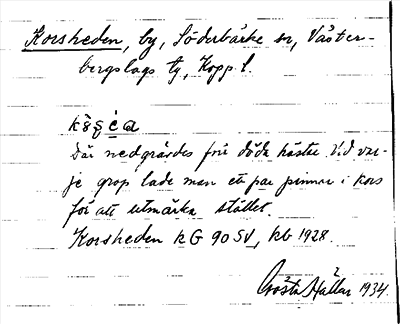 Korsheden, by, Söderbärke sn, Väster-
bergslags tg, Kopp. l.
Där nedgrävdes fru döda hästar. Vid var-
je grop lade man ett par pinnar i kors
för att utmärka stället.
Korsheden kG 90 SV, kb 1928.
Gösta Hållan 1934.